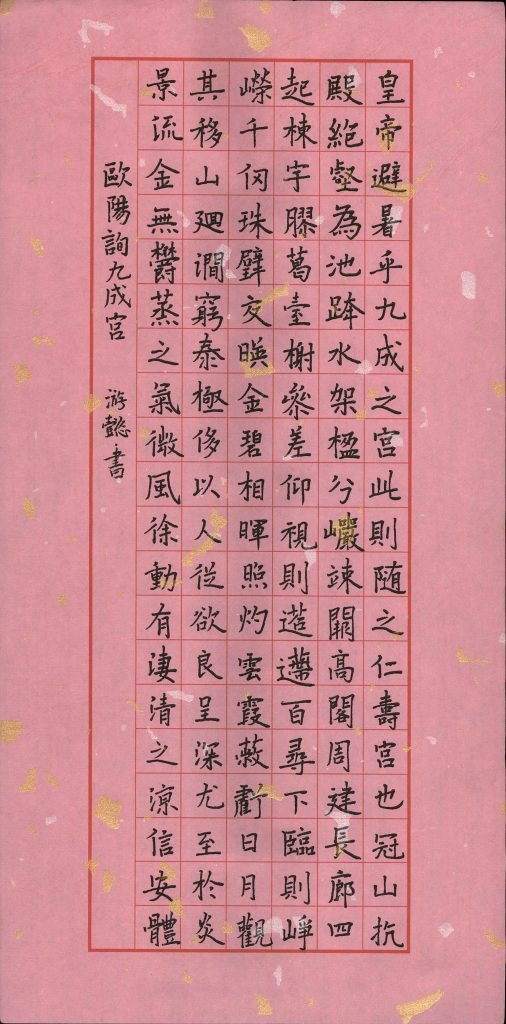 皇帝避暑乎九成之宮此則随之仁壽宮也冠山抗
殿絕壑為池跨水架楹兮巖竦闕高閣周建長廊四
起棟宇膠葛臺榭參差仰視則迢遰百尋下臨則崢
嶸千仞珠璧交暎金碧相暉照灼雲霞蔽虧日月觀
其移山廻澗窮泰極侈以人從欲良足深尤至於炎
景流金無欝蒸之氣微風徐動有淒清之涼信安體
歐陽詢九成宮 游懿書